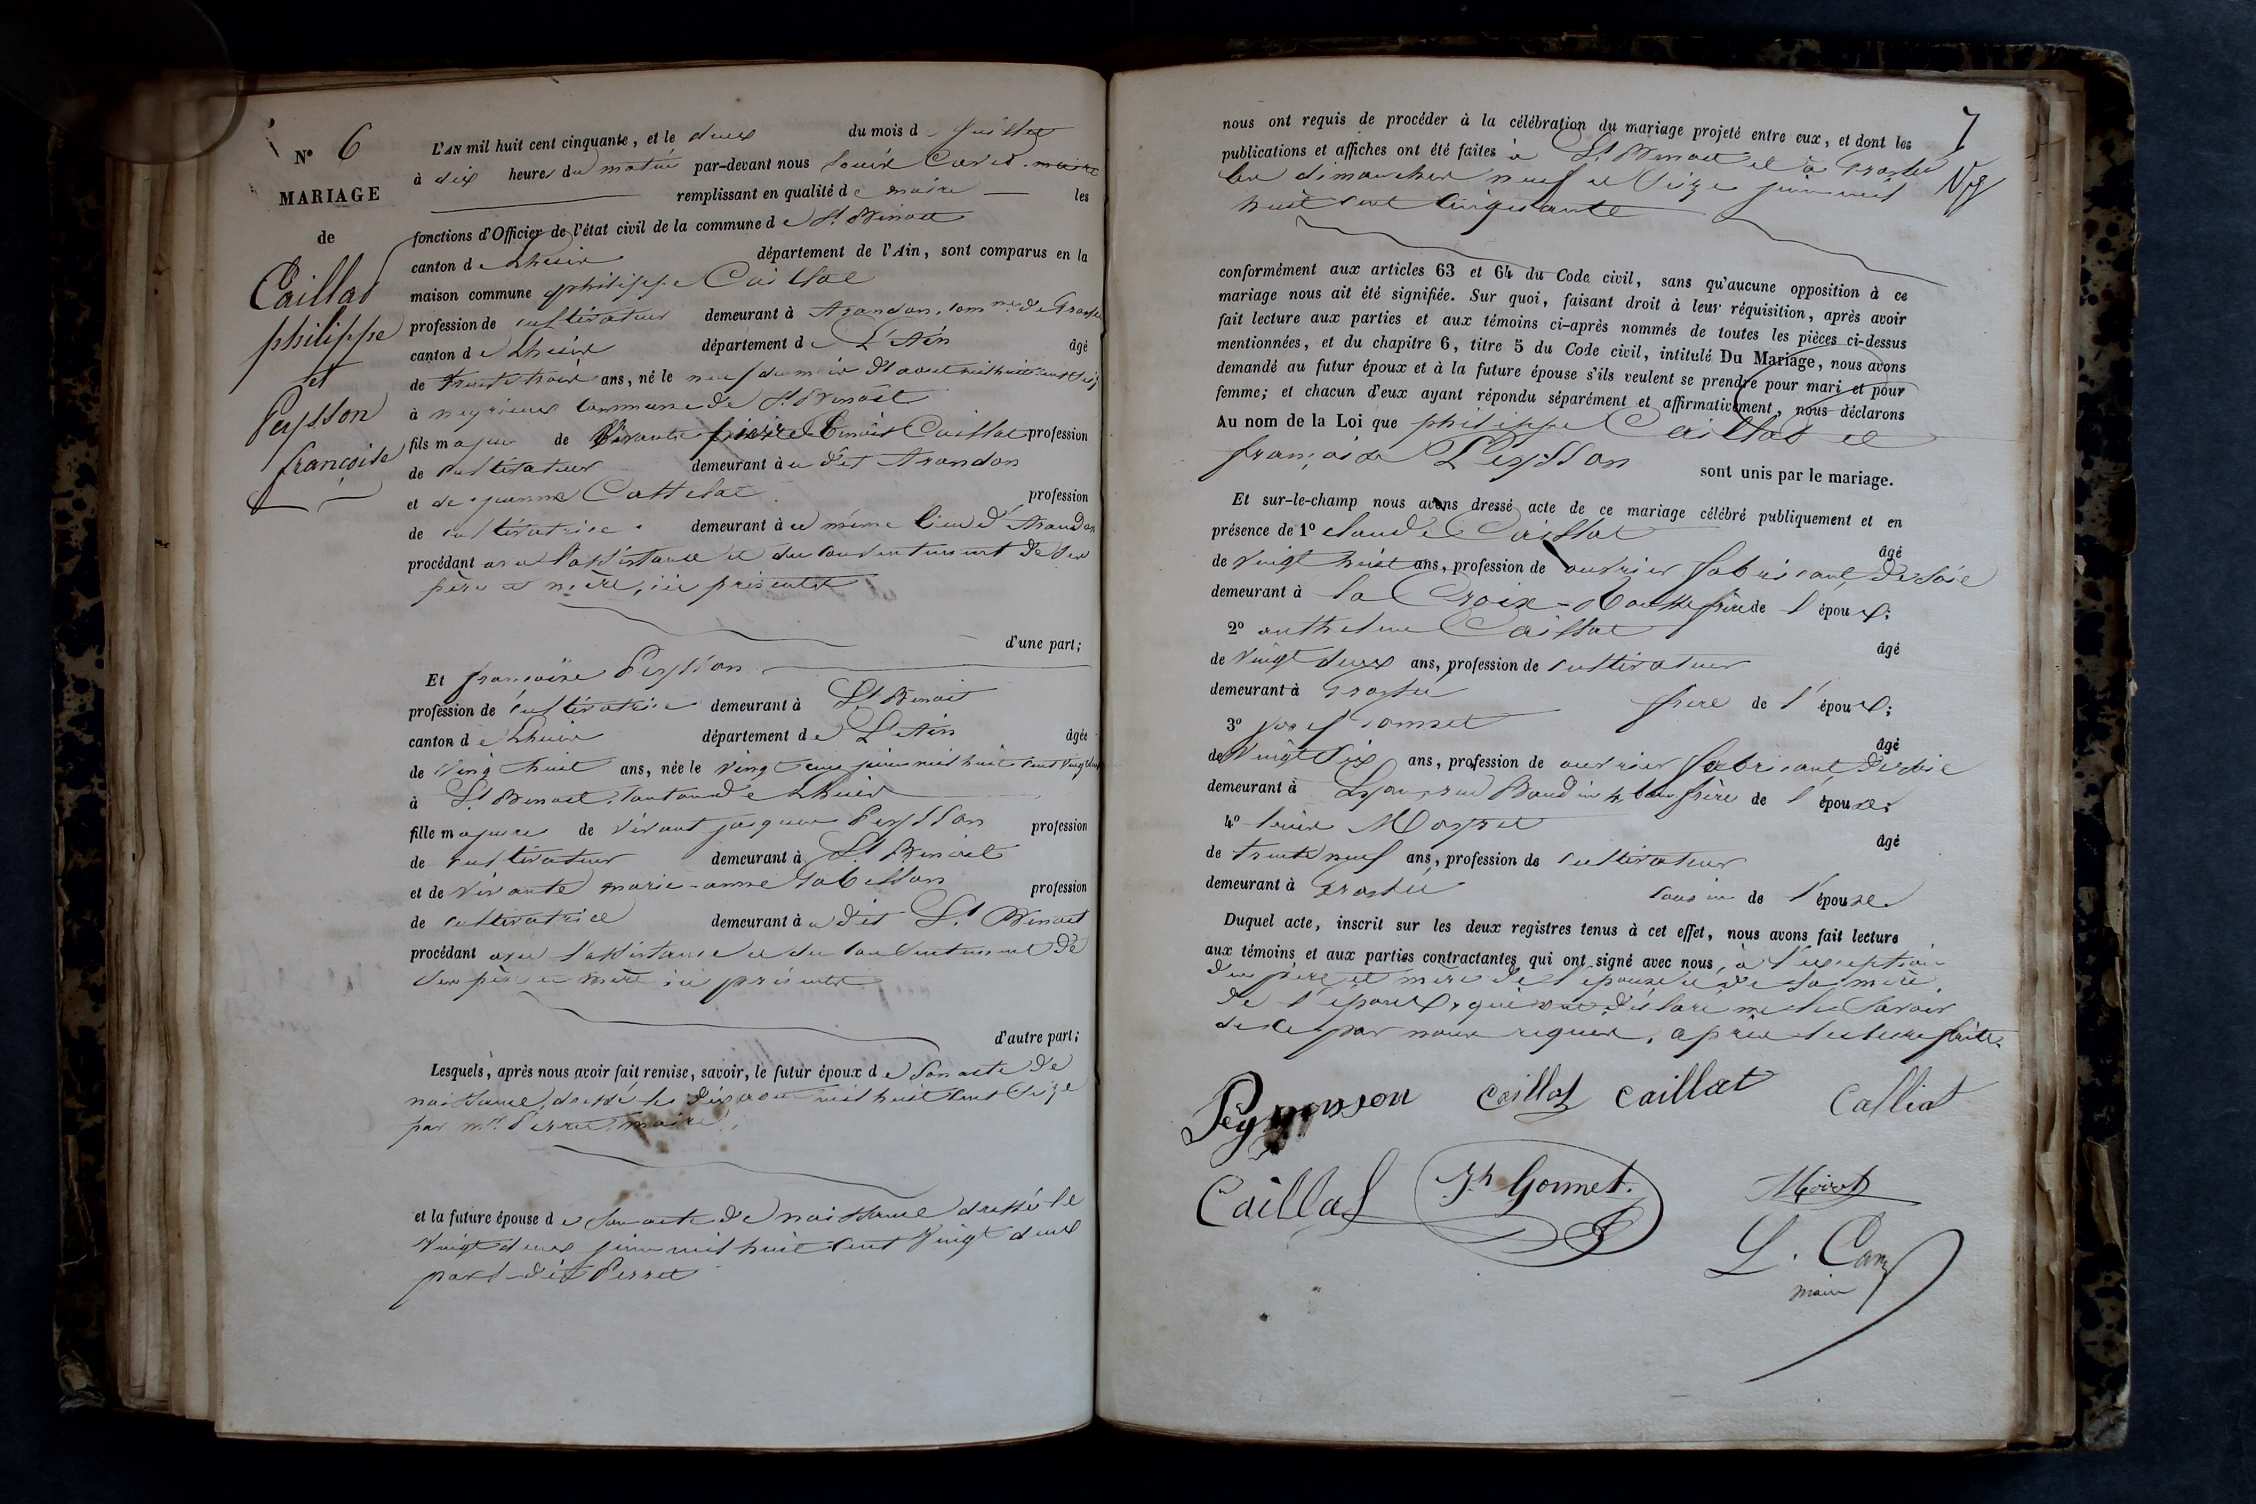 N° 6
MARIAGE
de
Caillat
philippe
et
Peysson
françoise
L'AN mil huit cent cinquante, et le deux du mois de juillet
à dix heures du matin par-devant nous Louis maire
remplissant en qualité de maire les
fonctions d'Officier de l'état civil de la commune de St Benoit
canton de Lhuis département de l'Ain, sont comparus en la
maison commune philippe Caillat
profession de cultivateur demeurant à Arandon, comne de Groslée
canton de Lhuis département de L'Ain âgé
de trente trois ans, né le neuf du mois d'aout mil huit cent seize
à commune de St Benoit
fils majeur de Benoit Caillat profession
de cultivateur demeurant à dit Arandon
et de jeanne profession
de cultivatrice demeurant à ce même lieu d'Arandon
procédant avec l'assistance et du consentement de ses
père et mère, ici présents
d'une part;
Et françoise Peysson
profession de cultivatrice demeurant à St Benoit
canton de Lhuis département de L'Ain âgée
de vingt huit ans, née le vingt juin mil huit cent vingt deux
à St Benoit, canton de Lhuis
fille majeure de vivant jacques Peysson profession
de cultivateur demeurant à St Benoit
et de vivante marie-anne profession
de cultivatrice demeurant à dit St Benoit
procédant avec l'assistance et du consentement de
ses père et mère ici présents
d'autre part;
Lesquels, après nous avoir fait remise, savoir, le futur époux de son acte de
naissance, dressé le dix aout mil huit cent seize
par mr Perret, maire,
et la future épouse de son acte de naissance dressé le
vingt deux juin mil huit cent vingt deux
par l-dit Perret
7
nous ont requis de procéder à la célébration du mariage projeté entre eux, et dont les
publications et affiches ont été faites à St Benoit et à Groslée
les dimanches neuf et seize juin mil
huit cent cinquante
conformément aux articles 63 et 64 du Code civil, sans qu'aucune opposition à ce
mariage nous ait été signifiée. Sur quoi, faisant droit à leur réquisition, après avoir
fait lecture aux parties et aux témoins ci-après nommés de toutes les pièces ci-dessus
mentionnées, et du chapitre 6, titre 5 du Code civil, intitulé Du Mariage, nous avons
demandé au futur époux et à la future épouse s'ils veulent se prendre pour mari et pour
femme; et chacun d'eux ayant répondu séparément et affirmativement, nous déclarons
Au nom de la Loi que philippe Caillat et
françoise Peysson sont unis par le mariage.
Et sur-le-champ nous avons dressé acte de ce mariage célébré publiquement et en
présence de 1° claude Caillat âgé
de vingt huit ans, profession de ouvrier fabricant de soie
demeurant à la Croix-Rousse frère de l'époux;
2° anthelme Caillat âgé
de vingt deux ans, profession de cultivateur
demeurant à Groslée frère de l'époux;
3° josef Gonnet âgé
de vingt six ans, profession de ouvrier fabricant de soie
demeurant à Lyon, rue Baudin beau frère de l'épouse;
4° louis âgé
de trente neuf ans, profession de cultivateur
demeurant à Groslée cousin de l'épouse
Duquel acte, inscrit sur les deux registres tenus à cet effet, nous avons fait lecture
aux témoins et aux parties contractantes qui ont signé avec nous, à l'exception
des père et mère de l'épouse et de la mère
de l'époux, qui ont déclaré ne le savoir
de ce par nous requis, après lecture faite.
caillat caillat Calliat
Caillat Jh Gonnet.
L.
maire